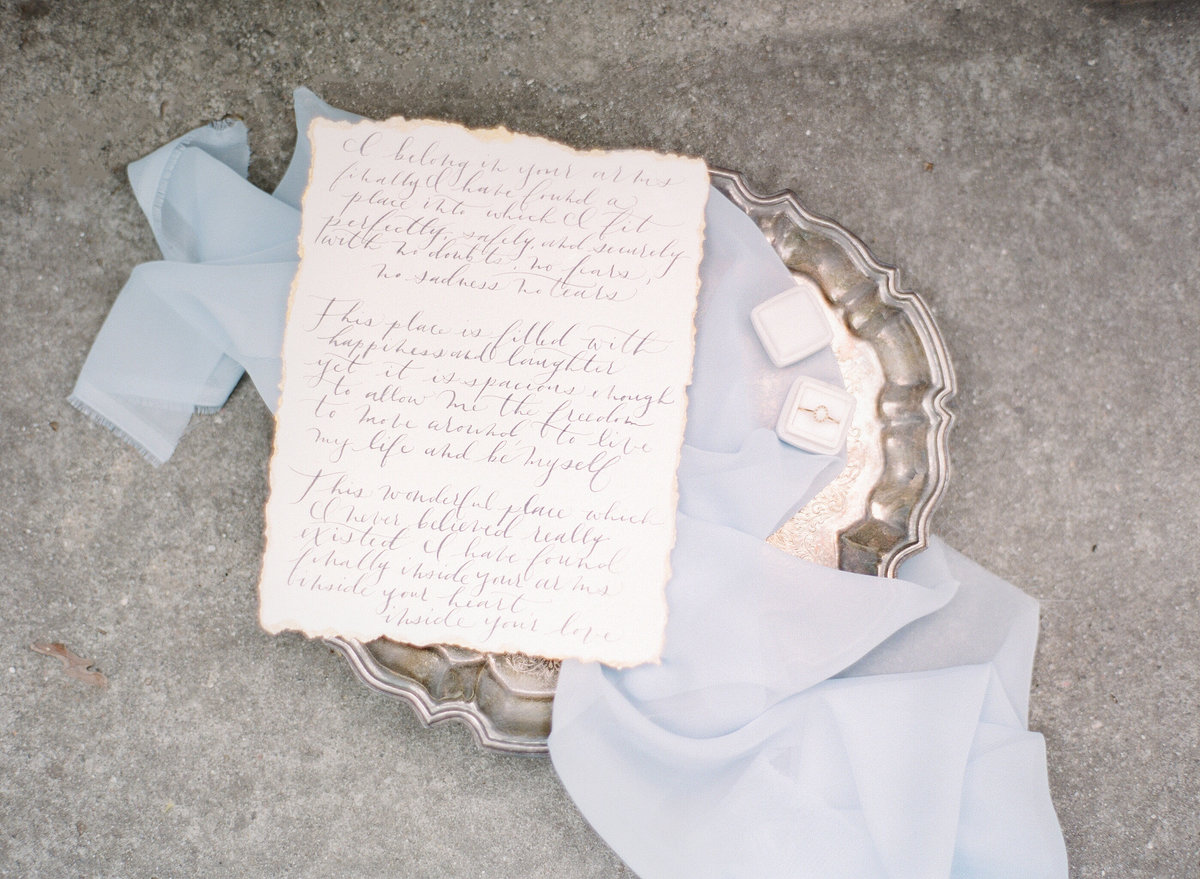 I belong in your arms
finally I have found a
place into which I fit
perfectly, safely, and securely
with no doubts, no fears,
no sadness no tears
This place is filled with
happiness and laughter
yet it is spacious enough
to allow me the freedom
to move around, to live
my life and be myself
This wonderful place which
I never believed really
existed I have found
finally inside your arms
inside your heart
inside your love